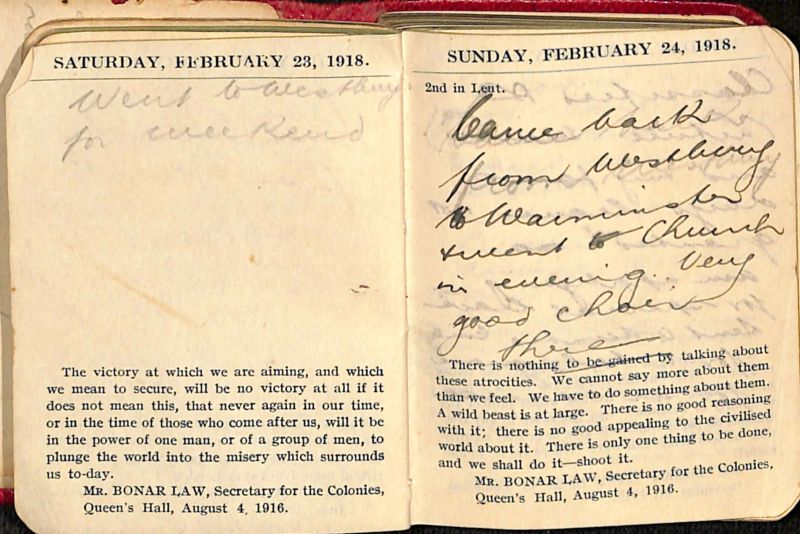 SATURDAY, FEBRUARY 23, 1918.
Went to Westbury
for weekend
The victory at which we are aiming, and which
we mean to secure, will be no victory at all if it
does not mean this, that never again in our time,
or in the time of those who come after us, will it be
in the power of one man, or of a group of men, to
plunge the world into the misery which surrounds
us to-day.
MR. BONAR LAW, Secretary for the Colonies,
Queen's Hall, August 4, 1916.
SUNDAY, FEBRUARY 24, 1918.
2nd in Lent.
Came back
from Westbury
to Warminster
& went to Church
in evening. Very
good choir
there
There is nothing to be gained by talking about
these atrocities. We cannot say more about them
than we feel. We have to do something about them.
A wild beast is at large. There is no good reasoning
with it; there is no good appealing to the civilised
world about it. There is only one thing to be done,
and we shall do it—shoot it.
MR. BONAR LAW, Secretary for the Colonies,
Queen's Hall, August 4, 1916.